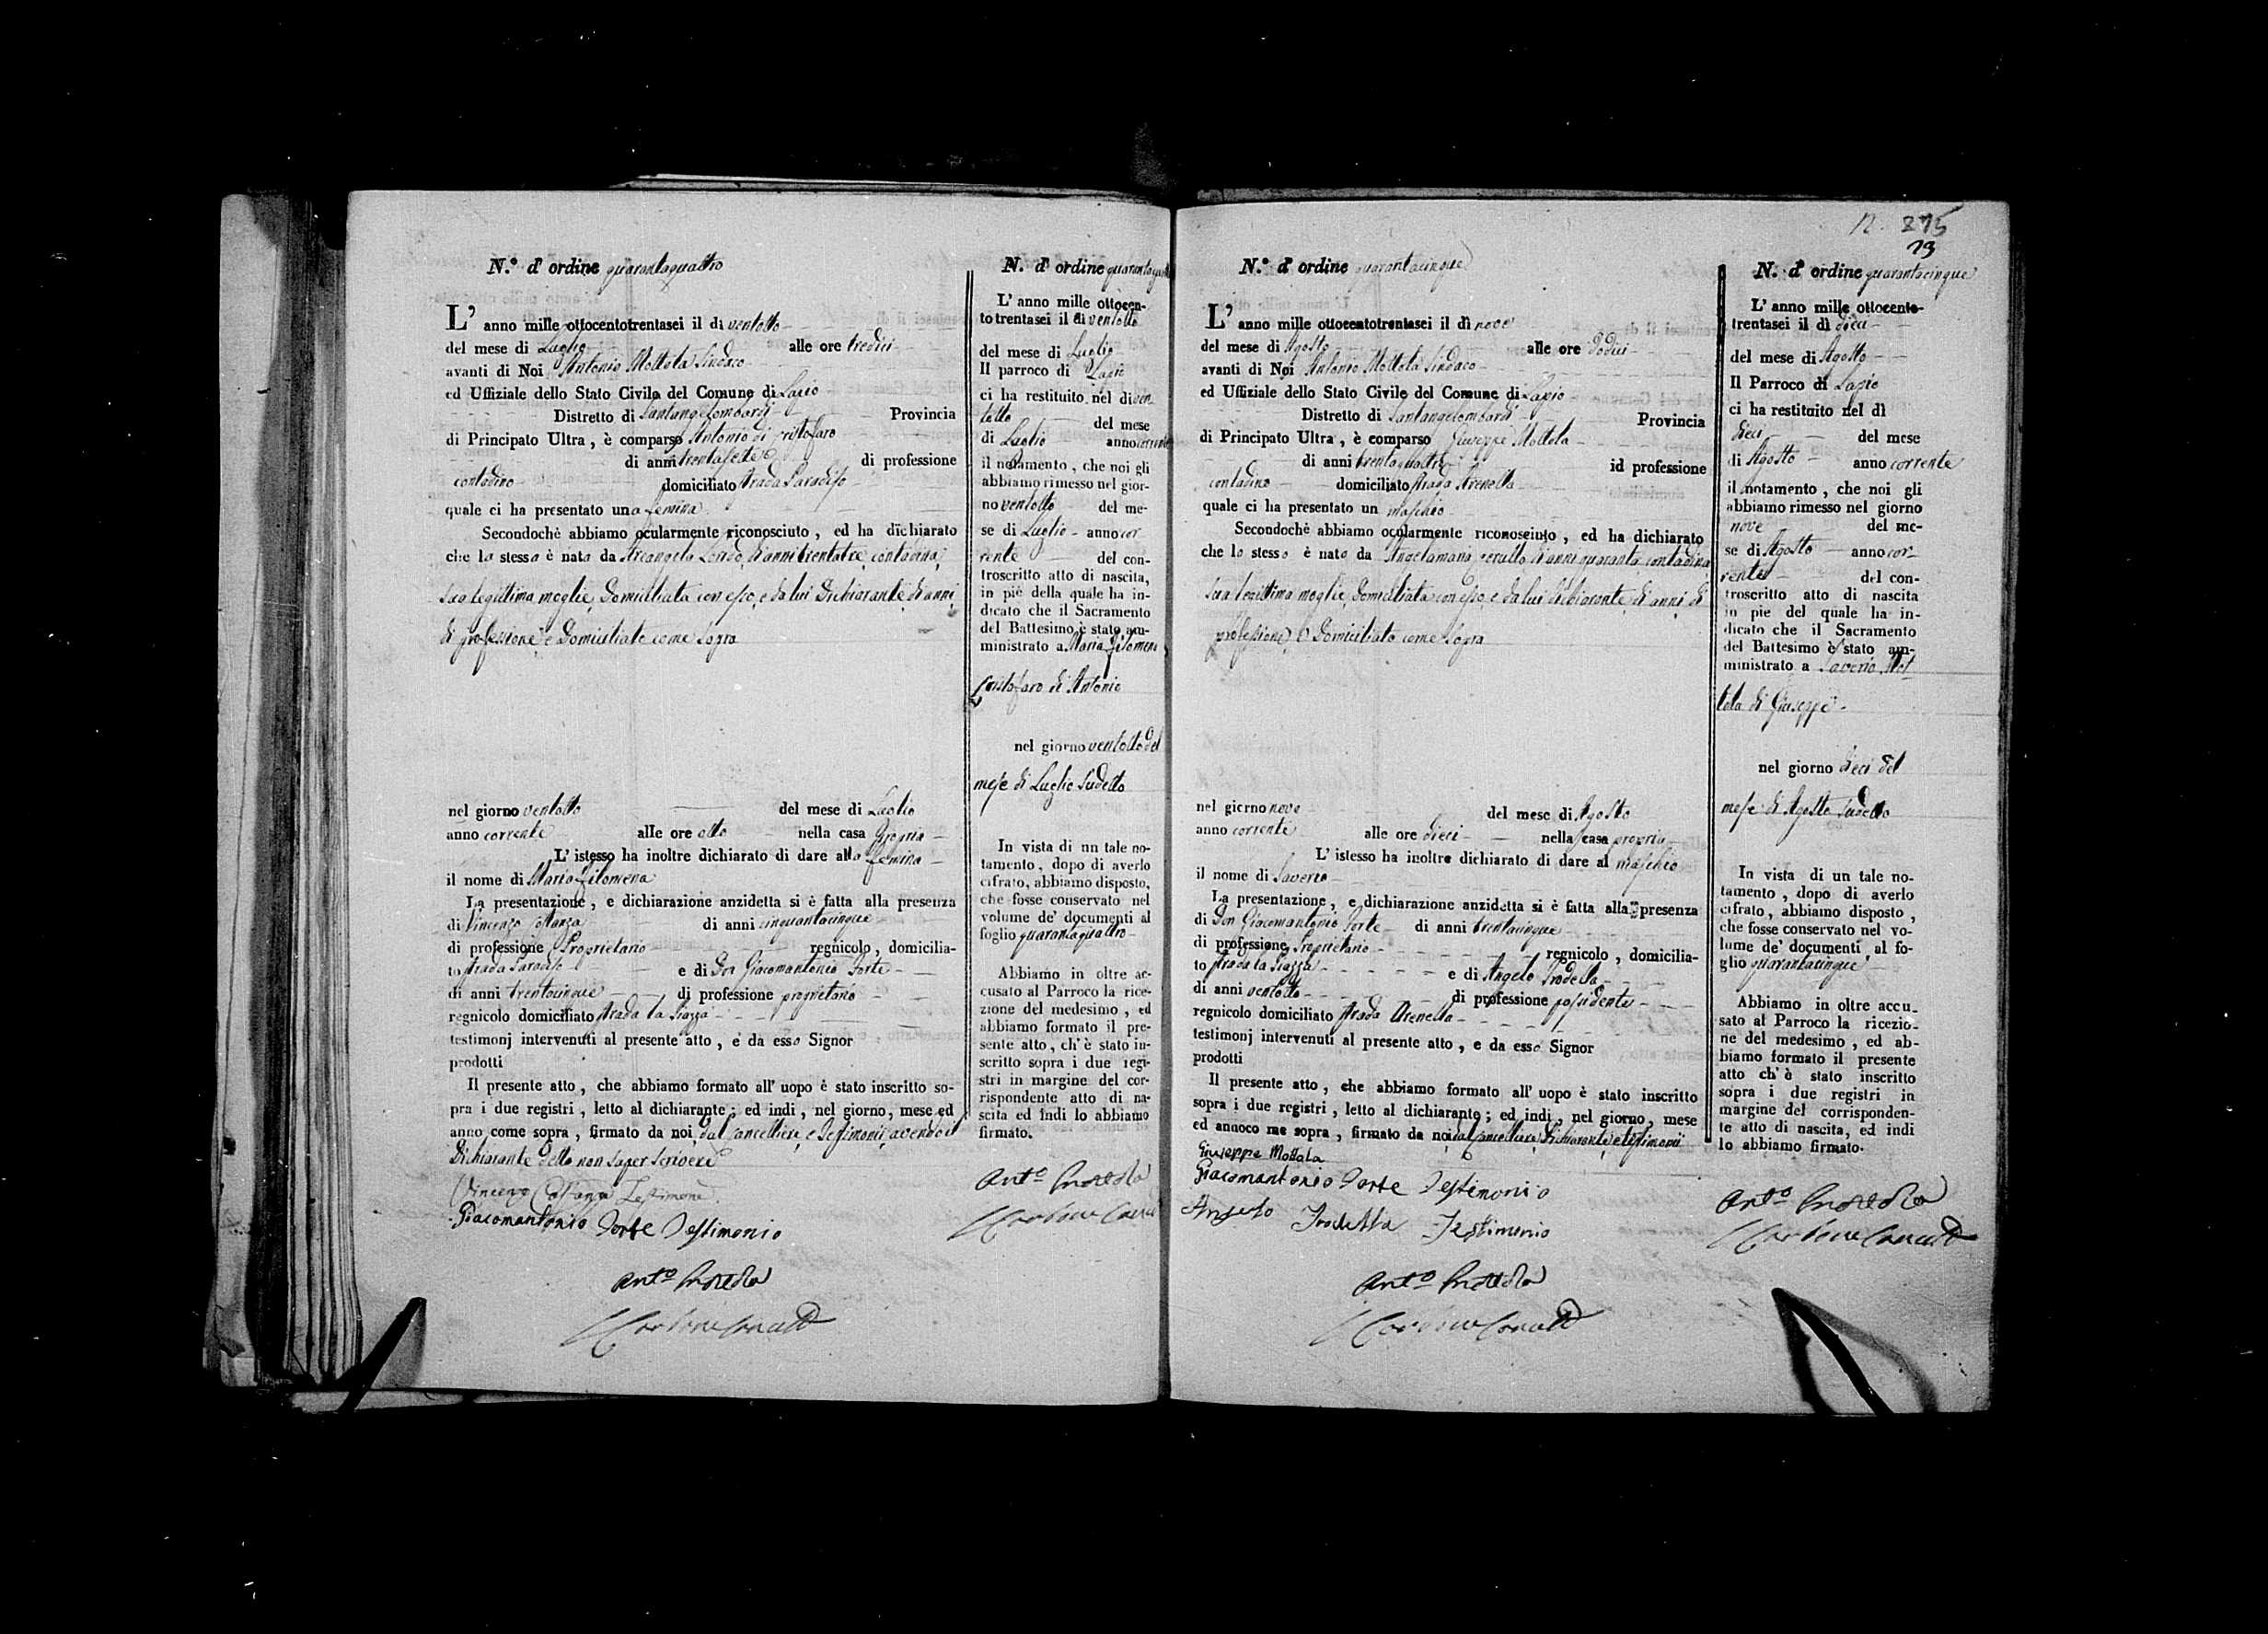 N.º d' ordine quarantaquattro
L' anno mille ottocentotrentasei il dì ventotto
del mese di Luglio alle ore tredici
avanti di Noi Antonio Mottola Sindaco
ed Uffiziale dello Stato Civile del Comune di Lapio
Distretto di Santangelombardi Provincia
di Principato Ultra, è comparso Antonio di Cristofaro
di anni trentasette di professione
contadino domiciliato strada Paradiso
quale ci ha presentato una femina
Secondochè abbiamo ocularmente riconosciuto, ed ha dichiarato
che la stessa è nata da Arcangela di anni trentatre, contadina,
sua legittima moglie, domiciliata con esso, e da lui Dichiarante di anni,
di professione, e domiciliato come sopra
nel giorno ventotto del mese di Luglio
anno corrente alle ore otto nella casa propria
L' istesso ha inoltre dichiarato di dare alla femina
il nome di Maria Filomena
La presentazione, e dichiarazione anzidetta si è fatta alla presenza
di Vincenzo Costanza di anni cinquantacinque
di professione Proprietario regnicolo, domicilia-
to strada Paradiso e di Don Giacomantonio Forte
di anni trentacinque di professione proprietario
regnicolo domiciliato strada la Piazza
testimonj intervenuti al presente atto, e da esso Signor
prodotti
Il presente atto, che abbiamo formato all' uopo è stato inscritto so-
pra i due registri, letto al dichiarante; ed indi, nel giorno, mese ed
anno come sopra, firmato da noi, dal Cancelliere, e Testimonii, avendo il
Dichiarante detto non saper scrivere
Vincenzo Costanza Testimone
Giacomantonio Forte Testimonio
Ant.º Mottola
N. d' ordine
L' anno mille ottocen-
totrentasei il dì ventotto
del mese di Luglio
Il parroco di Lapio
ci ha restituito nel dì ven-
totto del mese
di Luglio anno corrente
il notamento, che noi gli
abbiamo rimesso nel gior-
no ventotto del me-
se di Luglio anno cor
rente del con-
troscritto atto di nascita,
in piè della quale ha in-
dicato che il Sacramento
del Battesimo è stato am-
ministrato a Maria Filomena
Cristofaro di Antonio
nel giorno ventotto del
mese di Luglio sudetto
In vista di un tale no-
tamento, dopo di averlo
cifrato, abbiamo disposto,
che fosse conservato nel
volume de' documenti al
foglio quarantaquattro
Abbiamo in oltre ac-
cusato al Parroco la rice-
zione del medesimo, ed
abbiamo formato il pre-
sente atto, ch' è stato in-
scritto sopra i due regi-
stri in margine del cor-
rispondente atto di na-
scita ed indi lo abbiamo
firmato.
Ant.º Mottola
N. 275
73
N.º d' ordine quarantacinque
L' anno mille ottocentotrentasei il dì nove
del mese di Agosto alle ore dodici
avanti di Noi Antonio Mottola Sindaco
ed Uffiziale dello Stato Civile del Comune di Lapio
Distretto di Santangelombardi Provincia
di Principato Ultra, è comparso Giuseppe Mottola
di anni trentaquattro id professione
contadino domiciliato strada Arenella
quale ci ha presentato un maschio
Secondochè abbiamo ocularmente riconosciuto, ed ha dichiarato
che lo stesso è nato da Angelamaria di anni quaranta contadina
sua legittima moglie, domiciliata con esso, e da lui dichiarante, di anni di
professione, e domiciliato come sopra
nel giorno nove del mese di Agosto
anno corrente alle ore dieci nella casa propria
L' istesso ha inoltre dichiarato di dare al maschio
il nome di Saverio
La presentazione, e dichiarazione anzidetta si è fatta alla presenza
di Don Giacomantonio Forte di anni trentacinque
di professione Proprietario regnicolo, domicilia-
to strada la Piazza e di Angelo Trodella
di anni ventotto di professione possidente
regnicolo domiciliato strada Arenella
testimonj intervenuti al presente atto, e da esso Signor
prodotti
Il presente atto, che abbiamo formato all' uopo è stato inscritto
sopra i due registri, letto al dichiarante; ed indi, nel giorno, mese
ed annoco me sopra, firmato da noi, dal Cancelliere, Dichiarante, e testimonii
Giuseppe Mottola
Giacomantonio Forte Testimonio
Angelo Trodella Testimonio
Ant.º Mottola
N. d' ordine quarantacinque
L' anno mille ottocento-
trentasei il dì dieci
del mese di Agosto
Il Parroco di Lapio
ci ha restituito nel dì
dieci del mese
di Agosto anno corrente
il notamento, che noi gli
abbiamo rimesso nel giorno
nove del me-
se di Agosto anno cor-
rente del con-
troscritto atto di nascita
in piè del quale ha in-
dicato che il Sacramento
del Battesimo è stato am-
ministrato a Saverio Mot
tola di Giuseppe
nel giorno dieci del
mese di Agosto sudetto
In vista di un tale no-
tamento, dopo di averlo
cifrato, abbiamo disposto,
che fosse conservato nel vo-
lume de' documenti, al fo-
glio quarantacinque
Abbiamo in oltre accu-
sato al Parroco la ricezio-
ne del medesimo, ed ab-
biamo formato il presente
atto ch' è stato inscritto
sopra i due registri in
margine del corrisponden-
te atto di nascita, ed indi
lo abbiamo firmato.
Ant.º Mottola